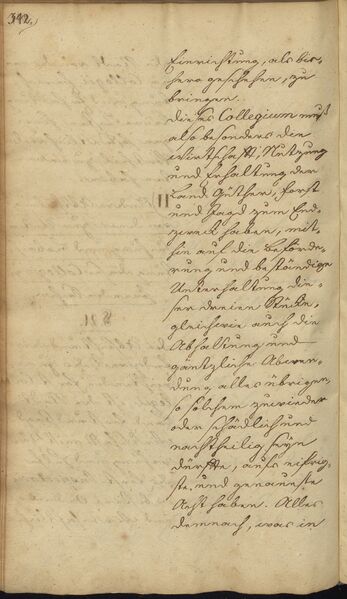 342.
Einrichtung, als bis-
hero geschehen, zu
bringen.
dieses Collegium muß
also besonders die
Wirtschafft, Nutzung
und Erhaltung der
Land Güther, Forst
und Jagd zum End-
zweck haben, mit-
hin auf die beförde-
rung und beständige
Unterhaltung die-
ser dreien Stücke,
gleichwie auch die
Abhaltung und
gäntzliche Abwen-
dung alles übrigen,
so solchem zuwieder
oder schädlich und
nachtheilig seyn
dürffte, aufs eifrig-
ste und genaueste
Acht haben. Alles
demnach, was in